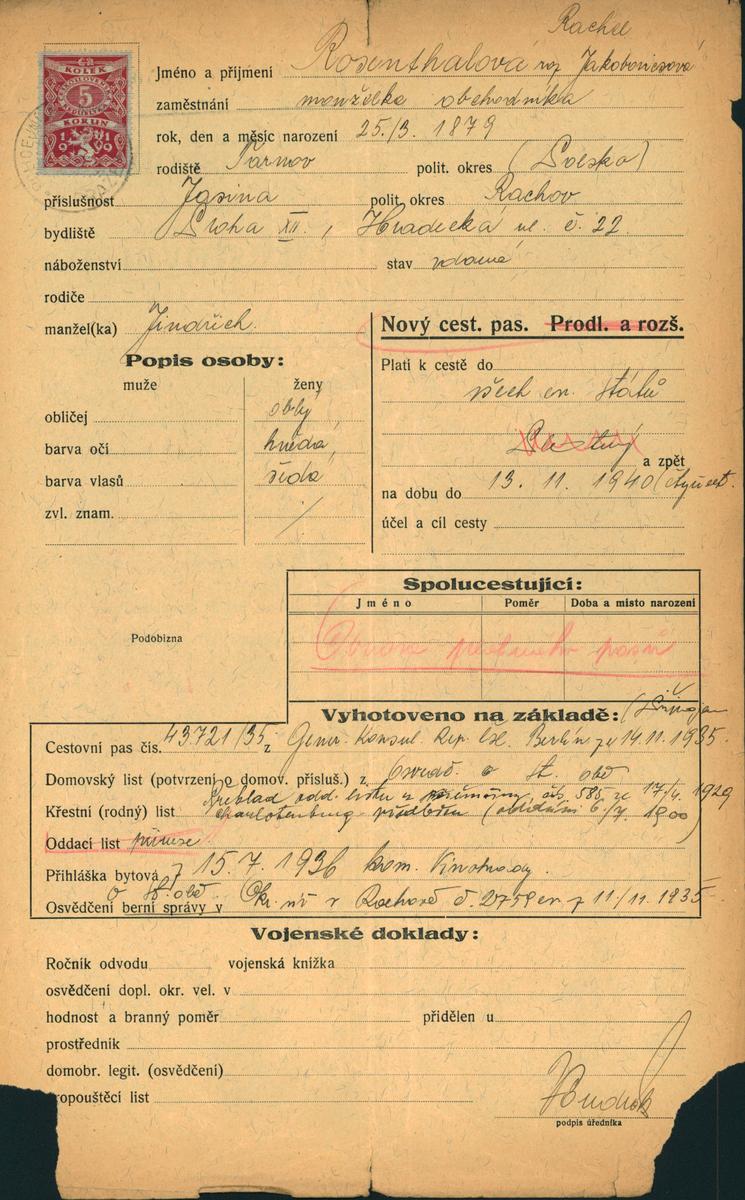 Rachel
Jméno a příjmení Rosenthalová roz Jakobovicsová
zaměstnání manželka obchodníka
rok, den a měsíc narození 25./3. 1879
rodiště Tarnov polit. okres (Polsko)
příslušnost Jasina polit. okres Rachov
bydliště Praha XII., Hradecká ul. č. 22
náboženství stav vdaná
rodiče
manžel(ka) Jindřich.
Popis osoby:
muže ženy
obličej oblý
barva očí hnědá
barva vlasů šedá
zvl. znam. /
Nový cest. pas. Prodl. a rozš.
Platí k cestě do
všech ev. států
a zpět
na dobu do 13. 11. 1940
účel a cíl cesty
Spolucestující:
Jméno Poměr Doba a místo narození
pasu
Vyhotoveno na základě:
Cestovní pas čís. 43.721/35 z Gener. Konsul Rep. Čsl. Berlín ze 14.11.1935.
Domovský list (potvrzení o domov. přísluš.) z Osvěd. o st. obč
Překlad odd. listu čís. 585 ze 17./4. 1929
Křestní (rodný) list Charlotenburg 1900)
Oddací list
Přihláška bytová z 15.7.1936 kom. Vinohrady.
o st. obč
Osvědčení berní správy v Okr. úř v Rachově č. 2759 z 11/11. 1935
Vojenské doklady:
Ročník odvodu vojenská knížka
osvědčení dopl. okr. vel. v
hodnost a branný poměr přidělen u
prostředník
domobr. legit. (osvědčení)
ropouštěcí list
podpis úředníka
KOLEK
5
KORUN